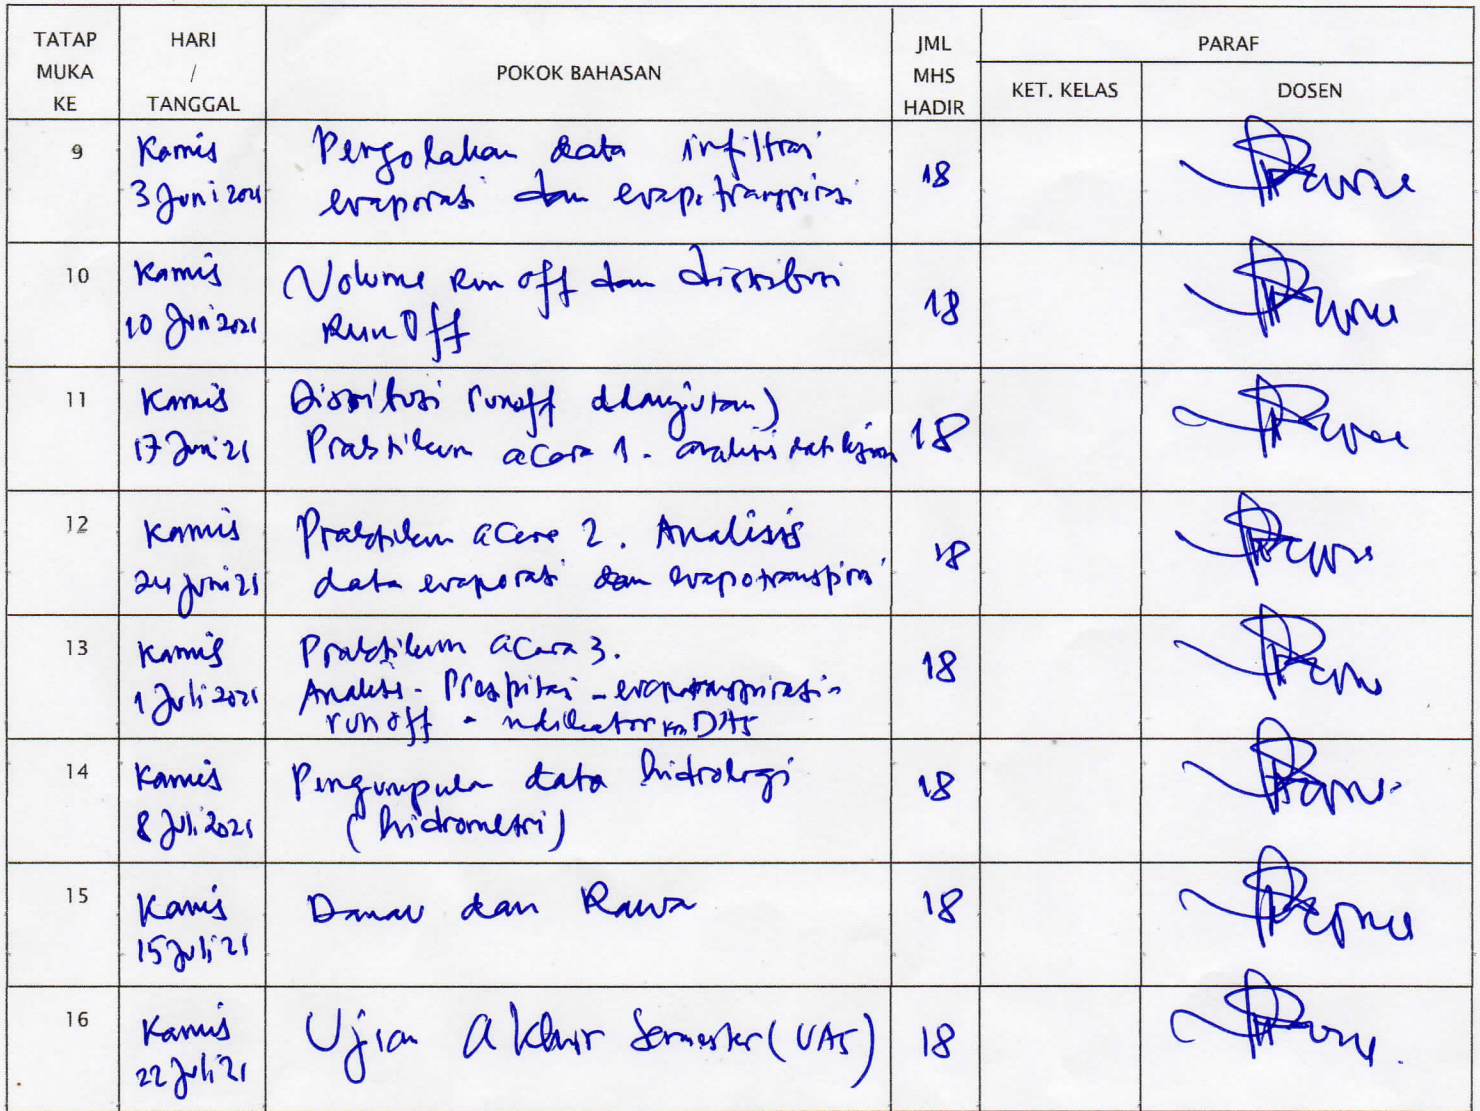 TATAP MUKA KE
HARI / TANGGAL
POKOK BAHASAN
JML MHS HADIR
PARAF
KET. KELAS
DOSEN
9
Kamis
3 Juni 2021
Pengolahan data infiltrasi
evaporasi dan evapotranspirasi
18
10
Kamis
10 Juni 2021
Volume Run off dan distribusi
Run Off
18
11
Kamis
17 Juni 21
Distribusi runoff
Praktikum acara 1. analisis
18
12
Kamis
24 Juni 21
Praktikum acara 2. Analisis
data evaporasi dan evapotranspirasi
18
13
Kamis
1 Juli 2021
Praktikum acara 3.
Analisis - - evapotranspirasi -
runoff - DAS
18
14
Kamis
8 Juli 2021
Pengumpulan data hidrologi
(hidrometri)
18
15
Kamis
15 Juli 21
Danau dan Rawa
18
16
Kamis
22 Juli 21
Ujian Akhir Semester (UAS)
18